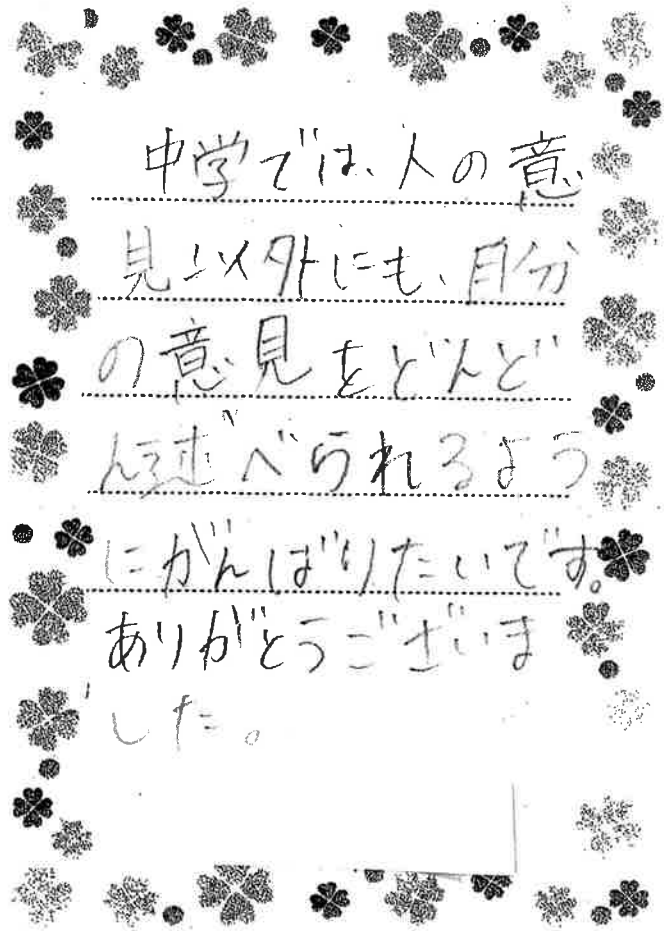 中学では、人の意
見以外にも、自分
の意見をどんど
ん述べられるよう
にがんばりたいです。
ありがとうございま
した。